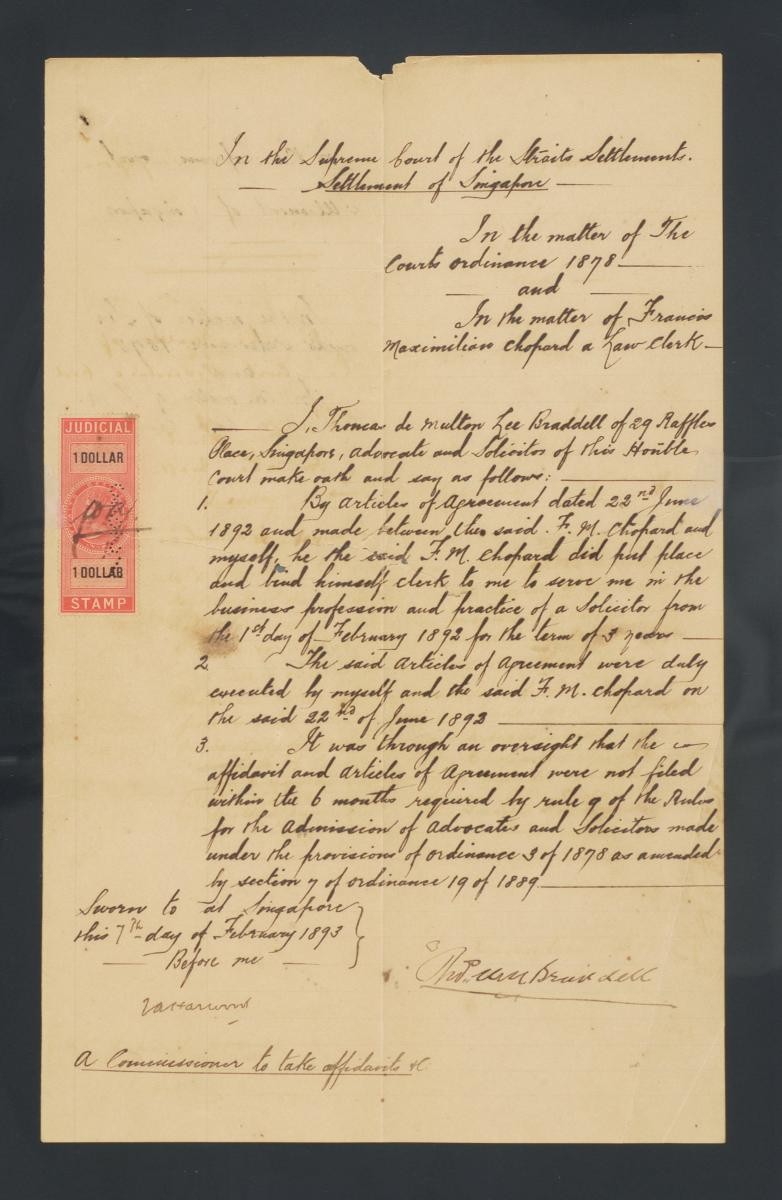 In the Supreme Court of the Straits Settlements.
Settlement of Singapore
In the matter of The
Courts Ordinance 1878
and
In the matter of Francis
Maximilian Chopard a Law Clerk
I, Thomas de Multon Lee Braddell of 29 Raffles
Place, Singapore, Advocate and Solicitor of this Honble
Court make oath and say as follows:
1. By Articles of Agreement dated 22nd June
1892 and made between the said F. M. Chopard and
myself, he the said F. M. Chopard did put place
and bind himself clerk to me to serve me in the
business profession and practice of a Solicitor from
the 1st day of February 1892 for the term of 3 years
2. The said Articles of Agreement were duly
executed by myself and the said F. M. Chopard on
the said 22nd of June 1892
3. It was through an oversight that the
affidavit and Articles of Agreement were not filed
within the 6 months required by rule 9 of the Rules
for the Admission of Advocates and Solicitors made
under the provisions of Ordinance 3 of 1878 as amended
by section 7 of Ordinance 19 of 1889
Sworn to at Singapore
this 7th day of February 1893
Before me
A Commissioner to take affidavits &c.
Braddell
JUDICIAL
1 DOLLAR
1 DOLLAR
STAMP